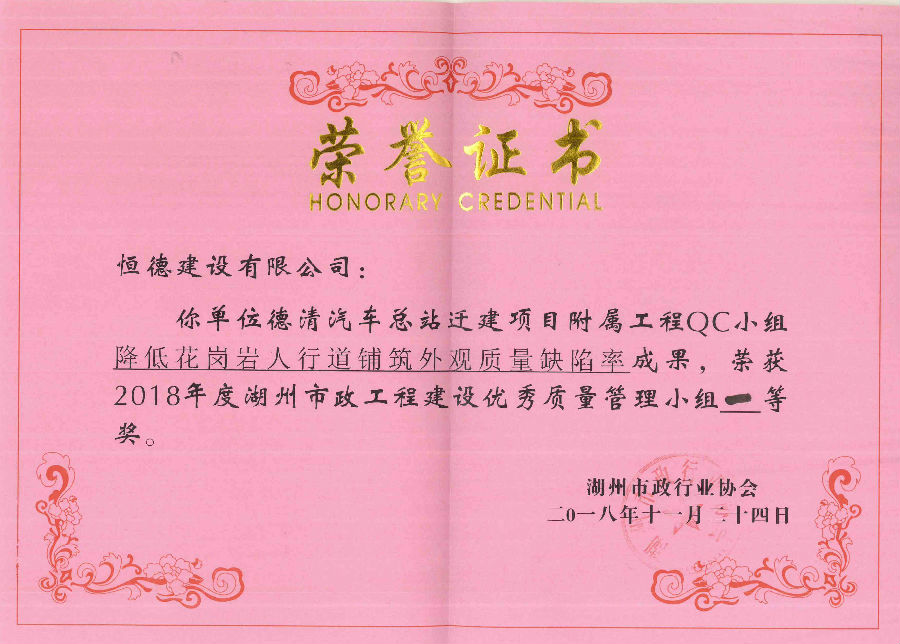 荣誉证书
HONORARY CREDENTIAL
恒德建设有限公司：
你单位德清汽车总站迁建项目附属工程QC小组
降低花岗岩人行道铺筑外观质量缺陷率成果，荣获
2018年度湖州市政工程建设优秀质量管理小组一等
奖。
湖州市政行业协会
二0一八年十一月二十四日